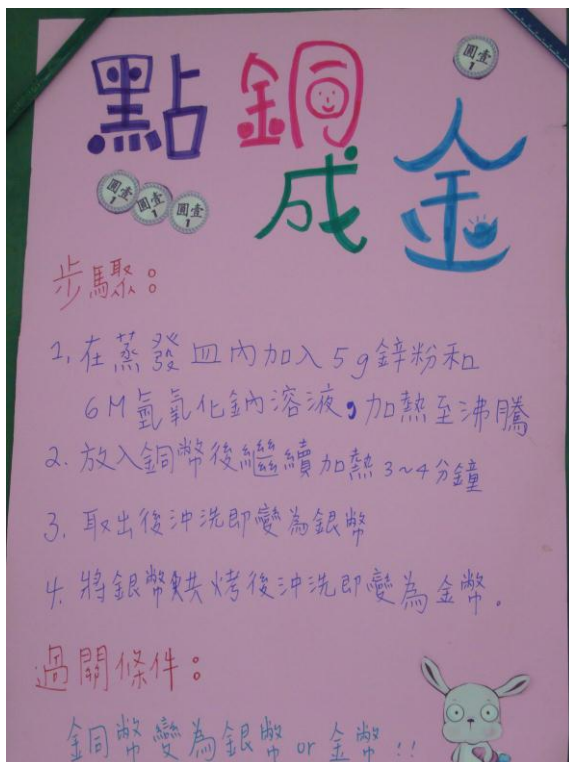 點銅成金
圓壹
1
圓壹
1
圓壹
1
圓壹
1
步驟：
1. 在蒸發皿內加入5g鋅粉和
6M氫氧化鈉溶液，加熱至沸騰
2. 放入銅幣後繼續加熱3~4分鐘
3. 取出後沖洗即變為銀幣
4. 將銀幣烘烤後沖洗即變為金幣.
過關條件：
銅幣變為銀幣 or 金幣!!